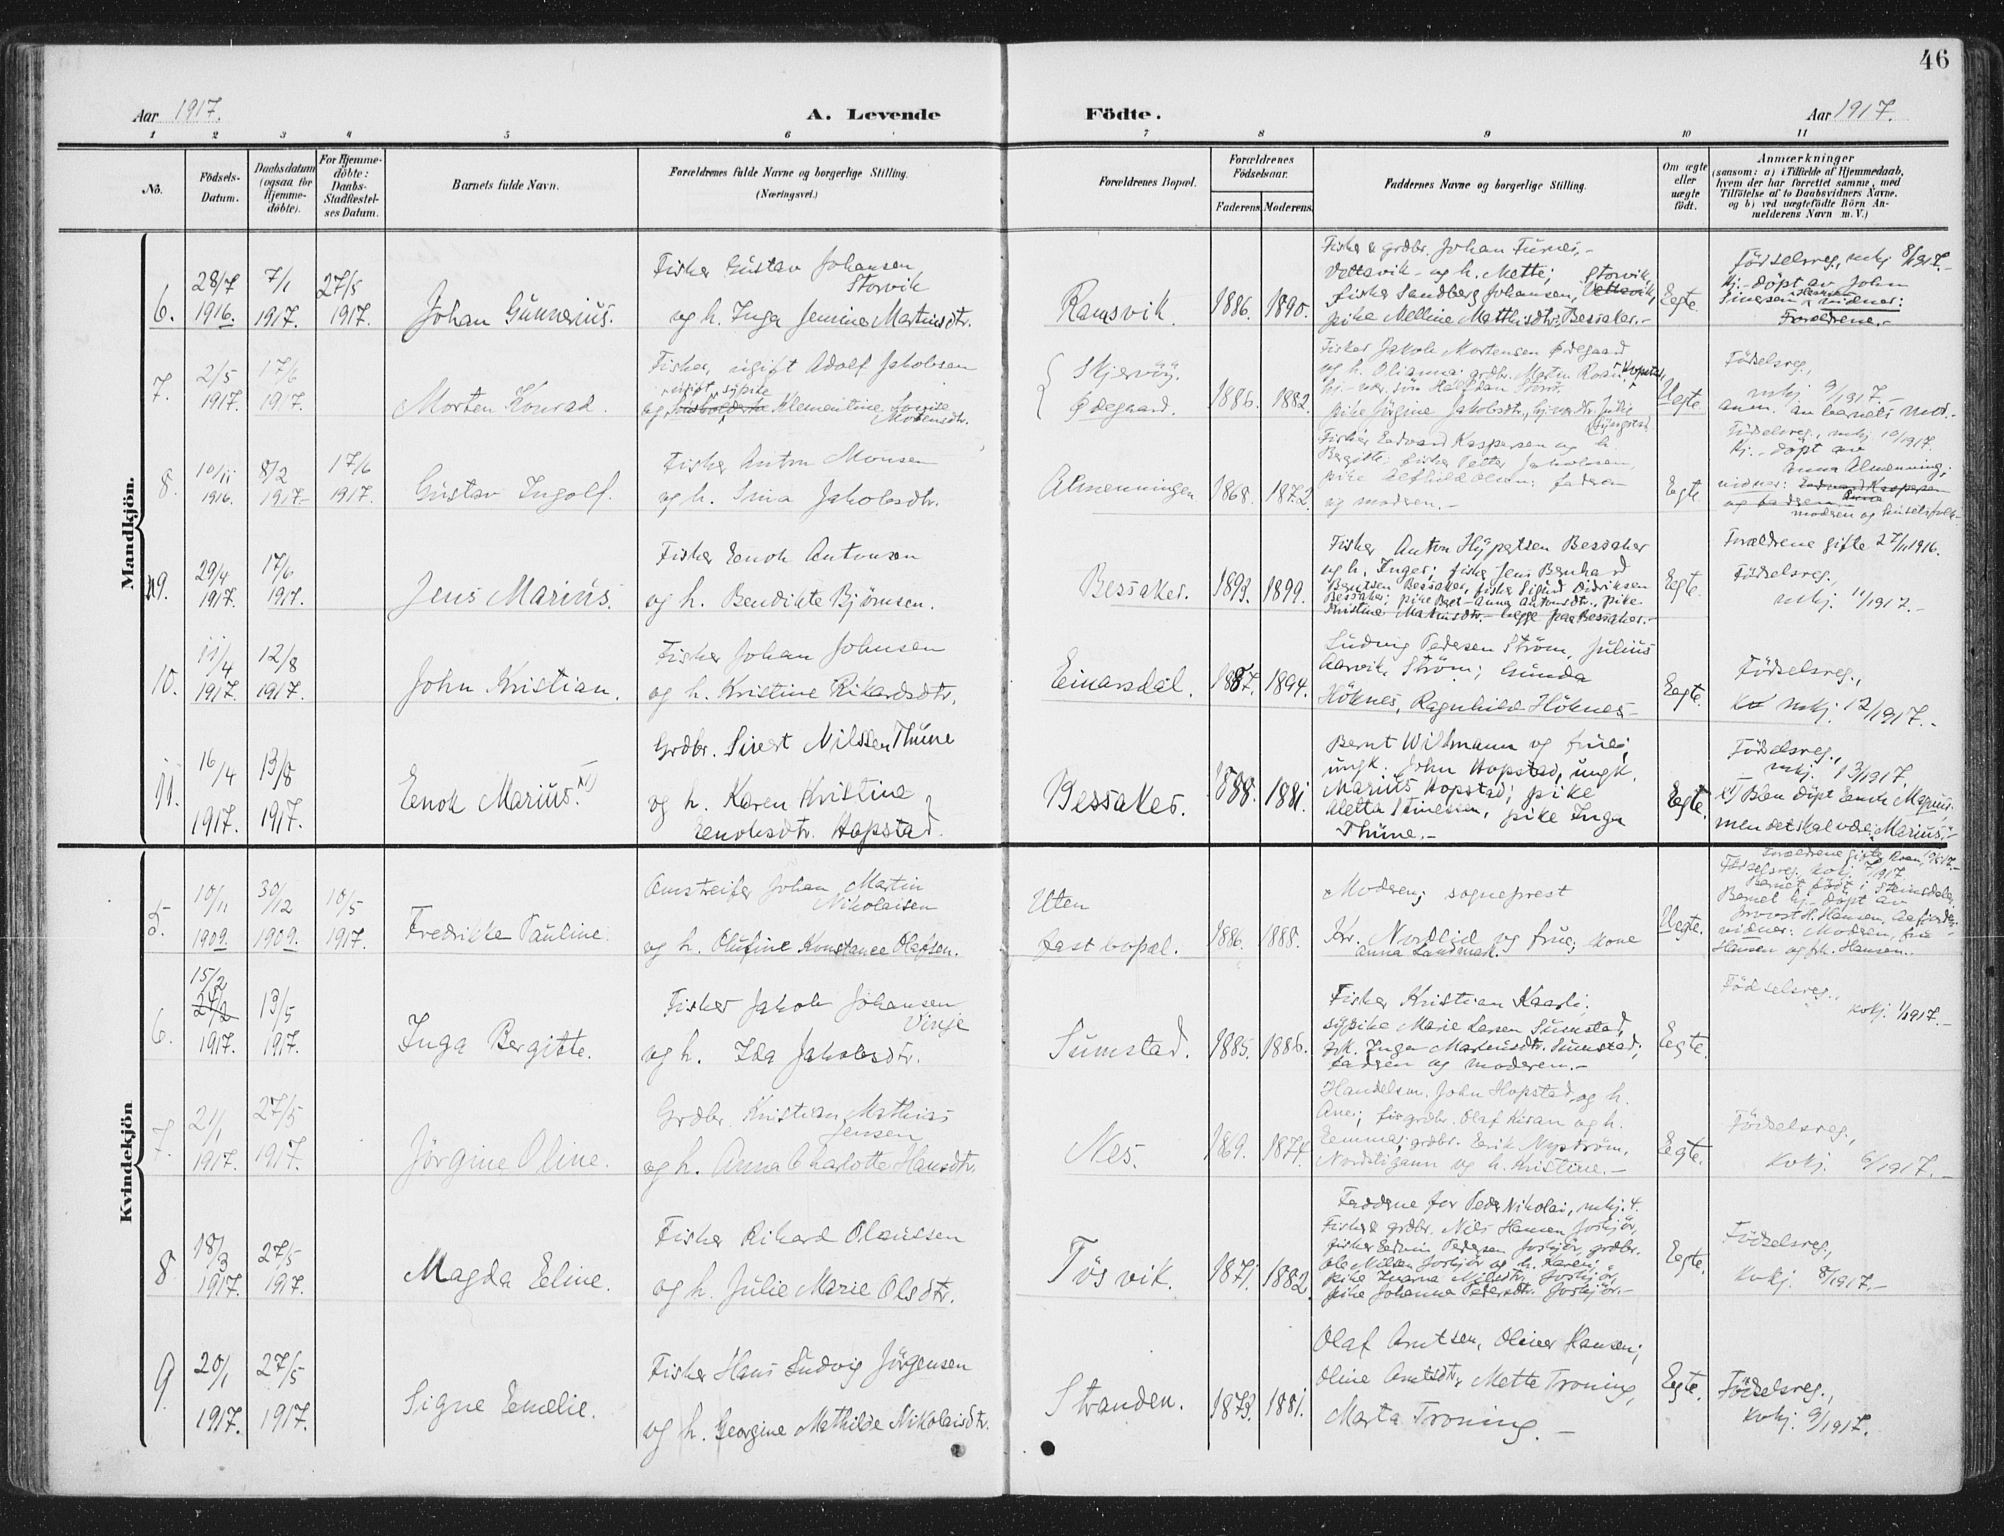 46
Aar 1917.
A. Levende
Födte.
Aar 1917.
1 2 3 4 5 6 7 8 9 10 11
No.
Födsels-
Datum.
Daabsdatum
(ogsaa for
Hjemme-
döbte).
For Hjemme-
döbte:
Daabs-
Stadfæstel-
ses Datum.
Barnets fulde Navn.
Forældrenes fulde Navne og borgerlige Stilling.
(Næringsvei.)
Forældrenes Bopæl.
Forældrenes
Födselsaar.
Faderens.
Moderens.
Faddernes Navne og borgerlige Stilling.
Om ægte
eller
uægte
födt.
Anmærkninger
(saasom: a) i Tilfælde af Hjemmedaab,
hvem der har forrettet samme, med
Tilföielse af to Daabsvidners Navne.
og b) ved uægtefödte Börn An-
melderens Navn m. V.)
Mandkjön.
6.
28/7
1916.
7/1
1917.
27/5
1917.
Johan Gunnerius.
Fisker Gustav Johansen
Storvik
og h. Inga Jennine Martinsdtr.
Ramsvik.
1886.
1890.
Fisker & grdbr. Johan Furnes,-
Vettavik- og h. Mette;
fisker Sandberg Johansen, Storvik,
pike Melline Matthisdtr. Bessaker.-
Egte.
Födselsreg., mkj 8/1917.-
Hj.-döpt av John
vidner:
Forældrene.-
7.
2/5
1917.
17/6
1917.
Morten Konrad.
Fisker, ugift Adolf Jakobsen
ugift, sypike
og Klementine Lovise
Mortensdtr.
Skjervöy.
Ödegaard.
1886.
1882.
Fisker Jakob Mortensen Ödegaard
og h. Olianna; grdbr. Morten
pike Jörgine Jakobsdtr.
Uegte.
Födselsreg.,
mkj 9/1917.-
anm. av barnets mod.
8.
10/11
1916.
8/2
1917.
17/6
1917.
Gustav Ingolf.
Fisker Anton Monsen
og h. Sina Jakobsdtr.
Almenningen
1868.
1872.
Fisker Edvard Kaspersen og h.
Bergitte; fisker Petter Jakobsen,
faderen
og moderen.-
Egte
Födselsreg., mkj 10/1917.
Hj.-döpt av
Anna Almenning;
vidner: Edvard Kaspersen
og faderen
moderen og husets folk-
9.
29/4
1917.
17/6
1917.
Jens Marius.
Fisker Enok Antonsen
og h. Bendikte Bjørnsen.
Bessaker.
1893.
1899.
Fisker Anton Hypertsen Bessaker
og h. Inger; fisker Jens Bernhard
Berntsen Bessaker, fisker Sigurd Didriksen
Bessaker; pike Beret-Anna Antonsdtr., pike
Kristine Matinsdtr.- begge paa Bessaker.-
Egte.
Forældrene gifte 27/11 1916.
Födselsreg.,
mkj. 11/1917.-
10.
11/4
1917.
12/8
1917.
John Kristian.
Fisker Johan Johnsen
og h. Kristine Rikardsdtr.
Einarsdal.
1887.
1894.
Ludvig Pedersen Ström, Julius
Aarvik, Ström; Gunda
Höknes, Ragnhild Höknes-
Egte.
Födselsreg.,
mkj. 12/1917.-
11.
16/4
1917.
13/8
1917.
Enok Marius. x)
Grdbr. Sivert Nilssen Thune
og h. Karen Kristine
Enoksdtr. Hopstad.
Bessaker.
1888.
1881.
Bernt Wilmann og frue;
ungk. John Hopstad, ungk.
Marius Hopstad; pike
Aletta Stinessen, pike Inga
Thune.-
Egte.
Födselsreg.,
mkj. 13/1917.
x) Blev döpt Enok Marius,
men det skal være: Marius.-
Kvindekjön
5.
10/11
1909.
30/12
1909.
10/5
1917.
Fredrikke Pauline.
Omstreifer Johan Martin
Nikolaisen
og h. Olufine Konstance Olafsen.
Uten
fast bopæl.
1886.
1888.
Moderen; sogneprest
Kr. Nordlid og frue; kone
Anna Landmark.
Uegte.
Födselsreg. kvkj. 5/1917.
Barnet födt i Steinsdalen
Barnet hj.-döpt av
provst H. Hansen, Aafjorden
vidner: Moderen, frue
Hansen og frk. Hansen.
6.
15/2
24/2
1917.
13/5
1917.
Inga Bergitte.
Fisker Jakob Johansen
Vinje
og h. Ida Jakobsdtr.
Sumstad.
1885.
1886.
Fisker Kristian Kaarli;
sypike Marie Larsen Sumstad,
frk. Inga Martinusdtr. Sumstad;
faderen og moderen.-
Egte.
Födselsreg.,
kvkj. 1/1917.-
7.
21/1
1917.
27/5
1917.
Jörgine Oline.
Grdbr. Kristian Mathias
Jensen
og h. Anna Charlotte Hansdtr.
Nes.
1869.
1874.
Handelsm. John Hopstad og h.
Ane; grdbr. Olaf Kiran og h.
Emma; grdbr. Erik Nyström,
Nordskigann og h. Kristine.-
Egte.
Födselsreg.,
kvkj. 6/1917.-
8
18/3
1917.
27/5
1917.
Magda Eline.
Fisker Rikard Olaussen
og h. Julie Marie Olsdtr.
Tösvik.
1871.
1882.
Fadderne for Peder Nikolai, mkj. 4.
Fisker & grdbr. Nils Hansen Joskjör,
fisker Edvin Pedersen Joskjör, grdbr.
Ole Nilsen Joskjör og h. Karen;
pike Inanna Nilsdtr. Joskjör,
pike Johanna Pedersdtr. Joskjör.-
Egte.
Födselsreg.,
kvkj. 8/1917.-
9.
20/1
1917.
27/5
1917.
Signe Emelie.
Fisker Hans Ludvig Jörgensen
og h. Georgine Mathilde Nikolaisdtr.
Stranden.
1873.
1881.
Olaf Arntsen, Oliver Hansen;
Oline Arntsdtr, Mette Troning,
Marta Troning.-
Egte.
Födselsreg.,
kvkj. 9/1917.